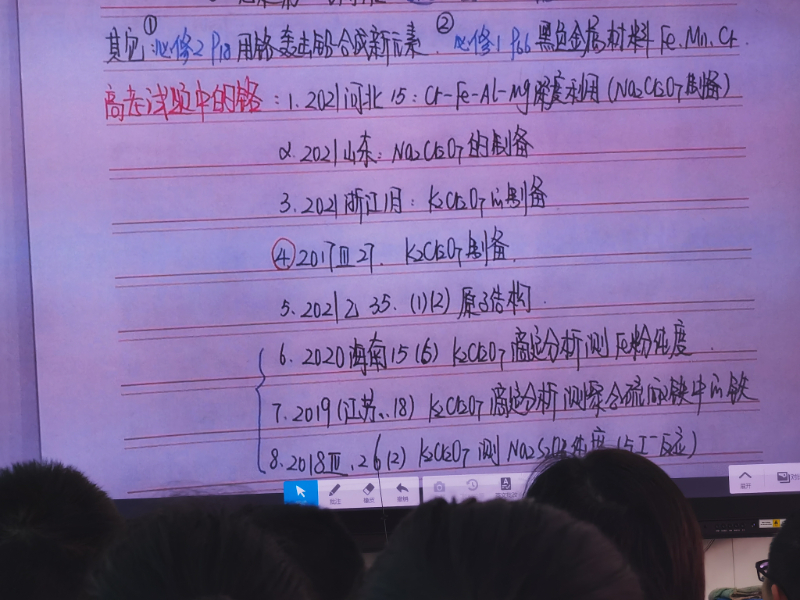 其它:①必修2 P18 用铬轰击铅合成新元素. ②必修1 P66 黑色金属材料 Fe、Mn、Cr
高考试题中的铬:1. 2021河北15:Cr-Fe-Al-Mg深度利用(Na2Cr2O7制备)
2. 2021山东:Na2Cr2O7的制备
3. 2021浙江1月:K2Cr2O7的制备
④2017Ⅲ27. K2Cr2O7制备.
5. 2021乙35. (1)(2) 原子结构.
6. 2020海南15(6) K2Cr2O7滴定分析测Fe粉纯度.
7. 2019(江苏、18) K2Cr2O7滴定分析测聚合硫酸铁中的铁
8. 2018Ⅲ、26(2) K2Cr2O7测Na2S2O3纯度(与I-反应)
批注
撤销
展开